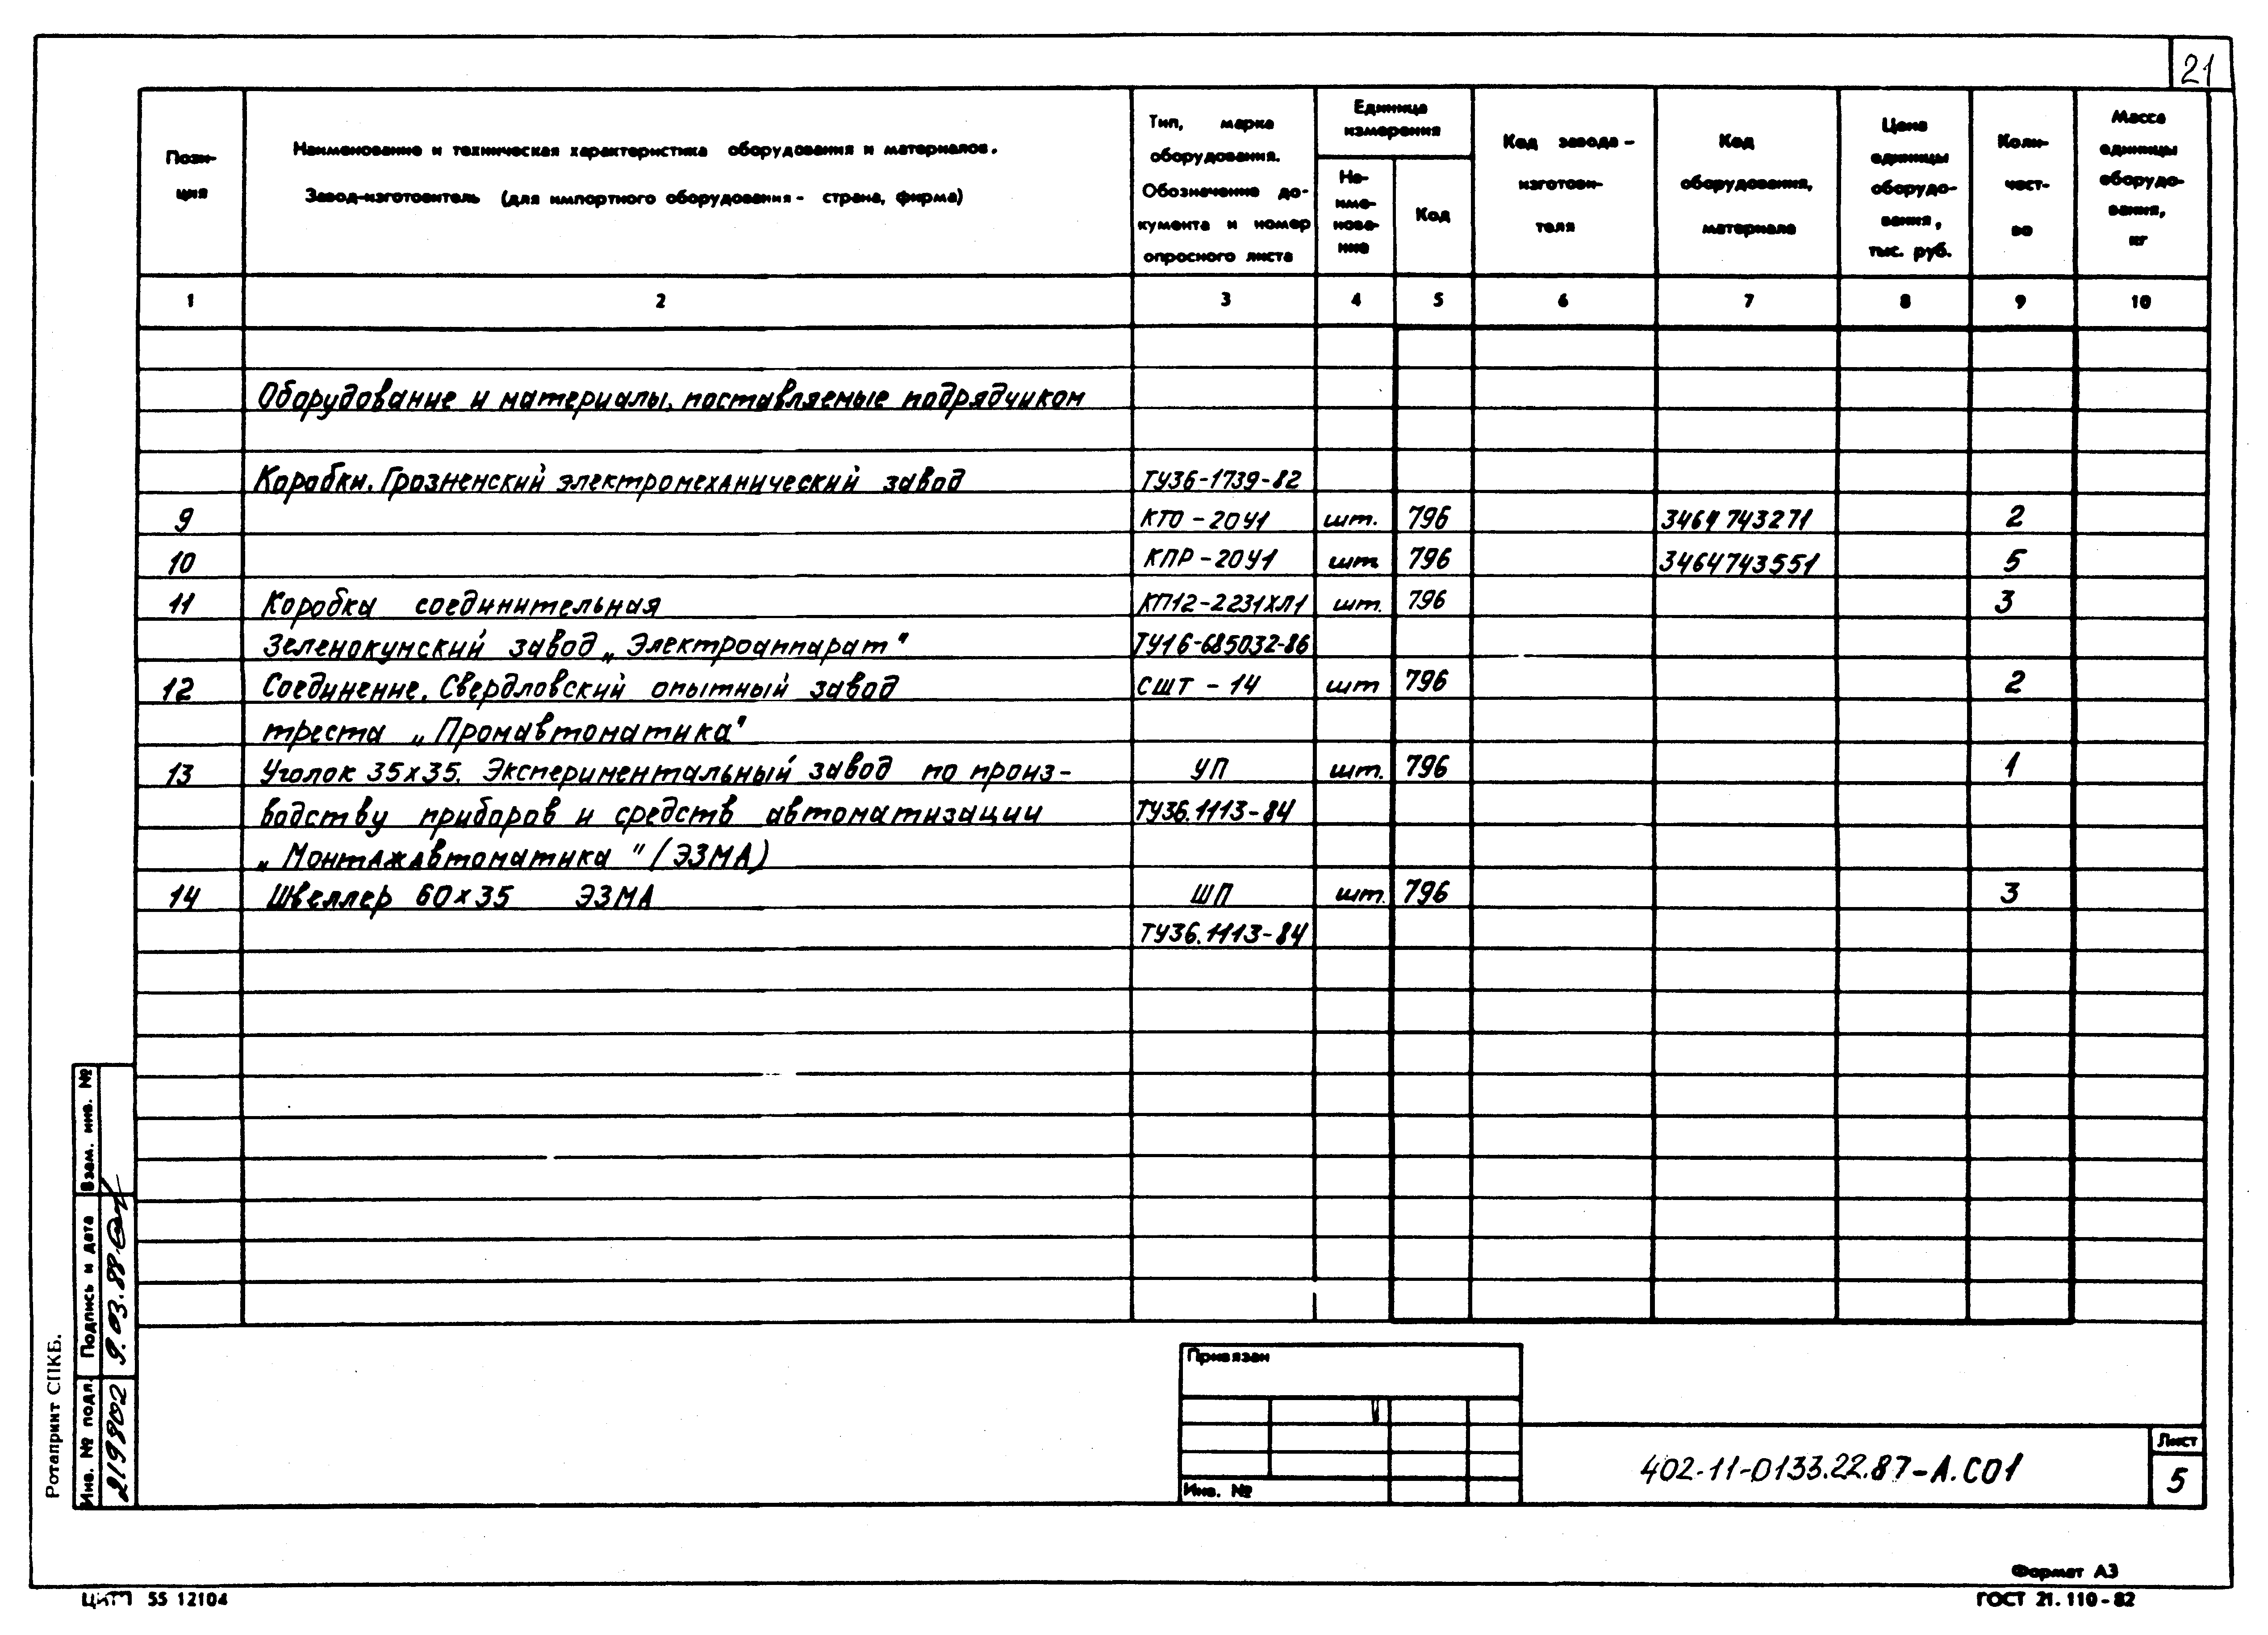 21
Пози-
ция
Наименование и техническая характеристика оборудования и материалов.
Завод-изготовитель (для импортного оборудования - страна, фирма)
Тип, марка
оборудования.
Обозначение до-
кумента и номер
опросного листа
Единица
измерения
На-
име-
нова-
ние
Код
Код завода -
изготови-
теля
Код
оборудования,
материала
Цена
единицы
оборудо-
вания,
тыс. руб.
Коли-
чест-
во
Масса
единицы
оборудо-
вания,
кг
1 2 3 4 5 6 7 8 9 10
Оборудование и материалы, поставляемые подрядчиком
Коробки. Грозненский электромеханический завод ТУ36-1739-82
9 КТО-20У1 шт. 796 3464743271 2
10 КПР-20У1 шт 796 3464743551 5
11 Коробка соединительная КП12-2231ХЛ1 шт. 796 3
Зеленокумский завод „Электроаппарат" ТУ16-685032-86
12 Соединение. Свердловский опытный завод СШТ-14 шт 796 2
треста „Промавтоматика"
13 Уголок 35х35. Экспериментальный завод по произ- УП шт. 796 1
водству приборов и средств автоматизации ТУ36.1113-84
„Монтажавтоматика" (ЭЗМА)
14 Швеллер 60х35 ЭЗМА ШП шт. 796 3
ТУ36.1113-84
Взам. инв. №
Подпись и дата
9.03.88
Инв. № подл.
219802
Ротапринт СПКБ.
Привязан
Инв. №
402-11-0133.22.87-А.СО1
Лист
5
Формат А3
ЦИТП 55 12104
ГОСТ 21.110-82